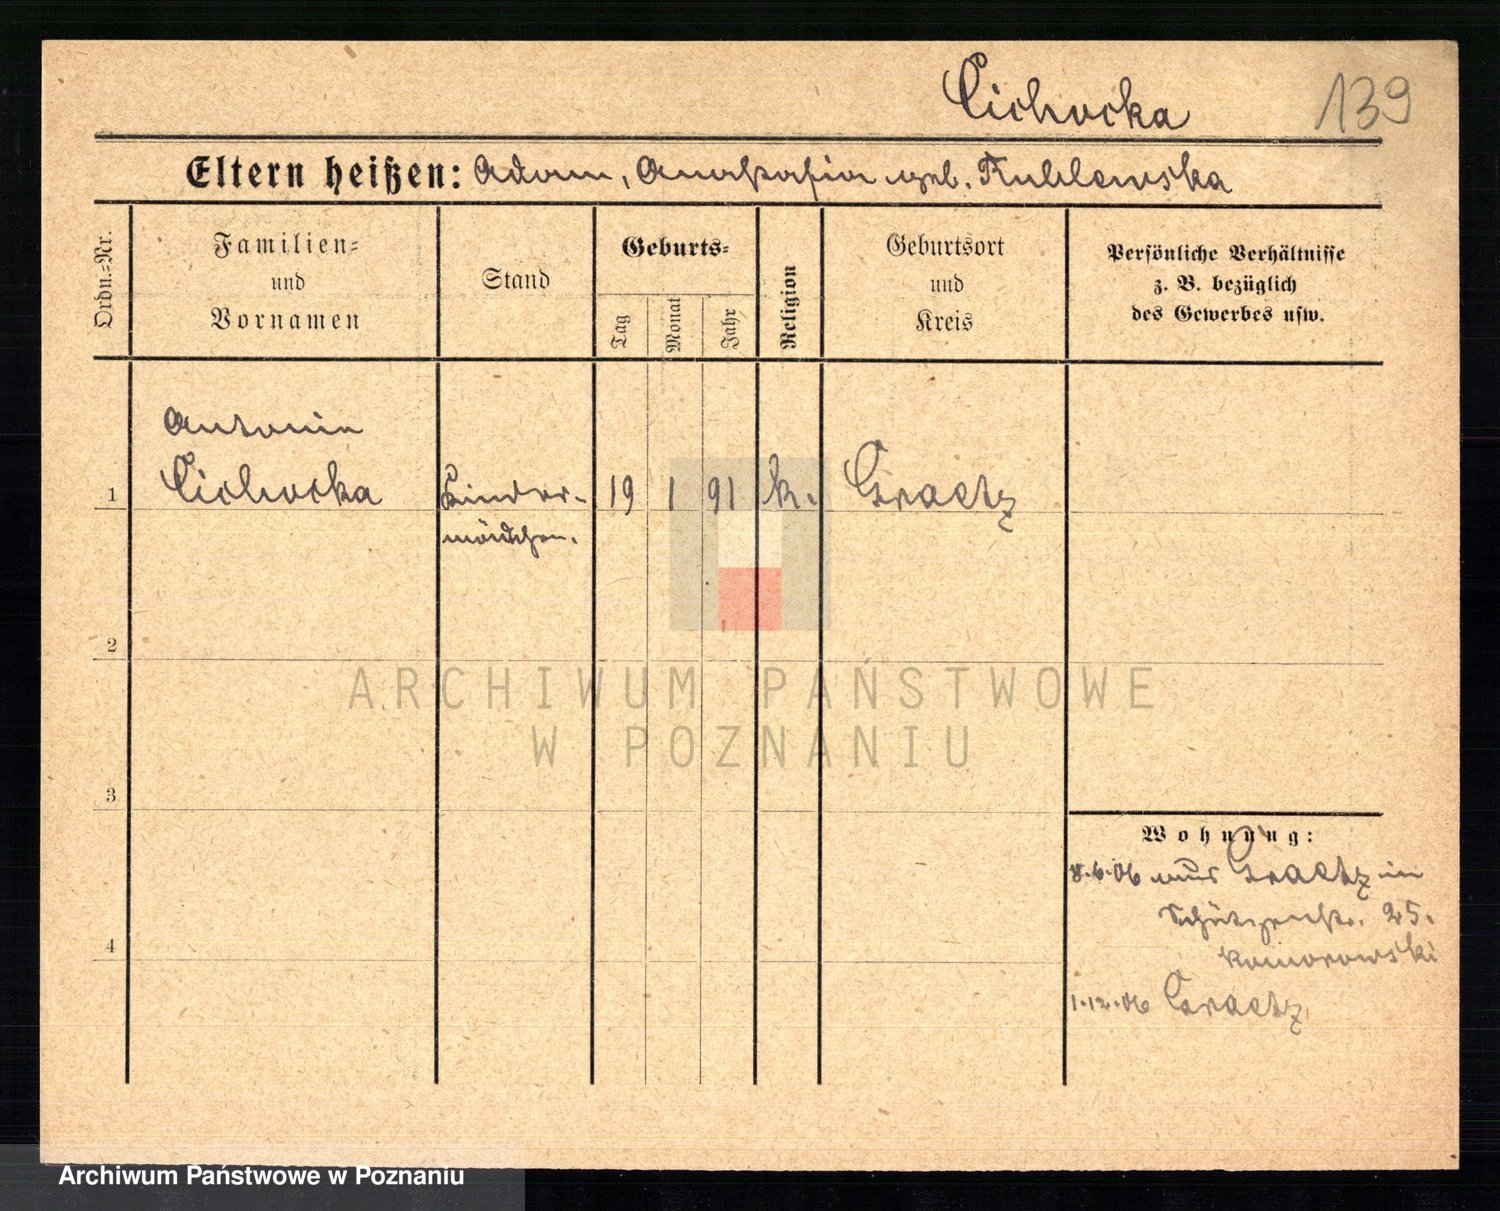 Cichocka
139
Eltern heißen: Adam, Anastasia geb.
Ordn.-Nr.
Familien-
und
Vornamen
Stand
Geburts-
Tag
Monat
Jahr
Religion
Geburtsort
und
Kreis
Persönliche Verhältnisse
z. B. bezüglich
des Gewerbes usw.
Antonie
1
Cichocka
Kinder-
mädchen.
19
1
91
k.
Graetz
2
3
4
Wohnung:
8.6.06 aus Graetz in
Schützenstr. 25.
Komorowski
1.12.06 Graetz
ARCHIWUM PAŃSTWOWE
W POZNANIU
Archiwum Państwowe w Poznaniu